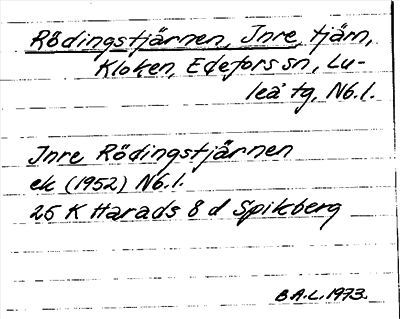 Rödingstjärnen, Inre, tjärn,
Kloken, Edefors sn, Lu-
leå tg, Nb.l.
Inre Rödingstjärnen
ek (1952) Nb.l.
25 K Harads 8 d Spikberg
B.A.L. 1973.